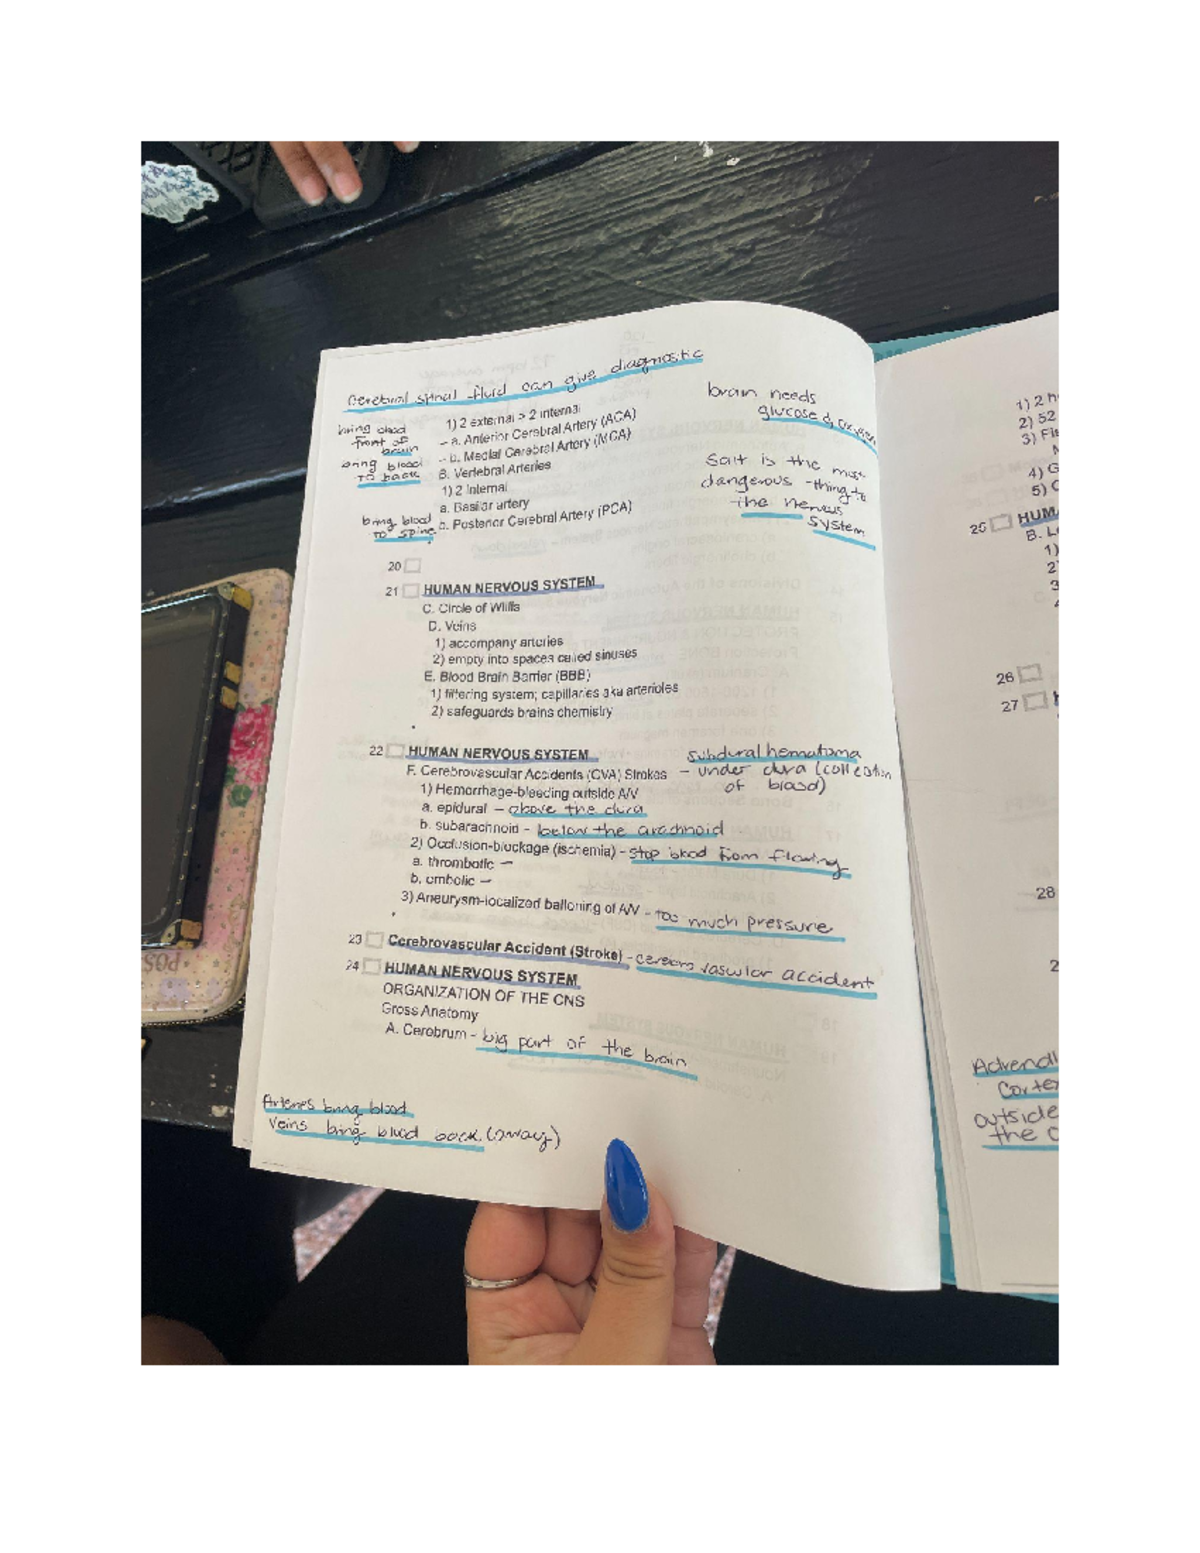 Cerebral spinal fluid can give diagnostic
brain needs
glucose & oxygen
Salt is the most
dangerous thing to
the nervous
system
bring blood
front of
brain
bring blood
TO back
bring blood
TO spine
1) 2 external > 2 internal
- a. Anterior Cerebral Artery (ACA)
- b. Medial Cerebral Artery (MCA)
B. Vertebral Arteries
1) 2 Internal
a. Basilar artery
b. Posterior Cerebral Artery (PCA)
20
21 HUMAN NERVOUS SYSTEM
C. Circle of Willis
D. Veins
1) accompany arteries
2) empty into spaces called sinuses
E. Blood Brain Barrier (BBB)
1) filtering system; capillaries aka arterioles
2) safeguards brains chemistry
22 HUMAN NERVOUS SYSTEM
subdural hematoma
- under dura (collection
of blood)
F. Cerebrovascular Accidents (CVA) Strokes
1) Hemorrhage-bleeding outside A/V
a. epidural - above the dura
b. subarachnoid - below the arachnoid
2) Occlusion-blockage (ischemia) - stop blood from flowing
a. thrombotic -
b. embolic -
3) Aneurysm-localized balloning of A/V - too much pressure
23 Cerebrovascular Accident (Stroke) - cerebro vascular accident
24 HUMAN NERVOUS SYSTEM
ORGANIZATION OF THE CNS
Gross Anatomy
A. Cerebrum - big part of the brain
Arteries bring blood
Veins bring blood back (away)
1) 2 h
2) 52
3) Fis
4) G
5) C
25 HUM
B. L
1)
2
3
26
27
28
2
Adrenal
Cortex
outside
the c